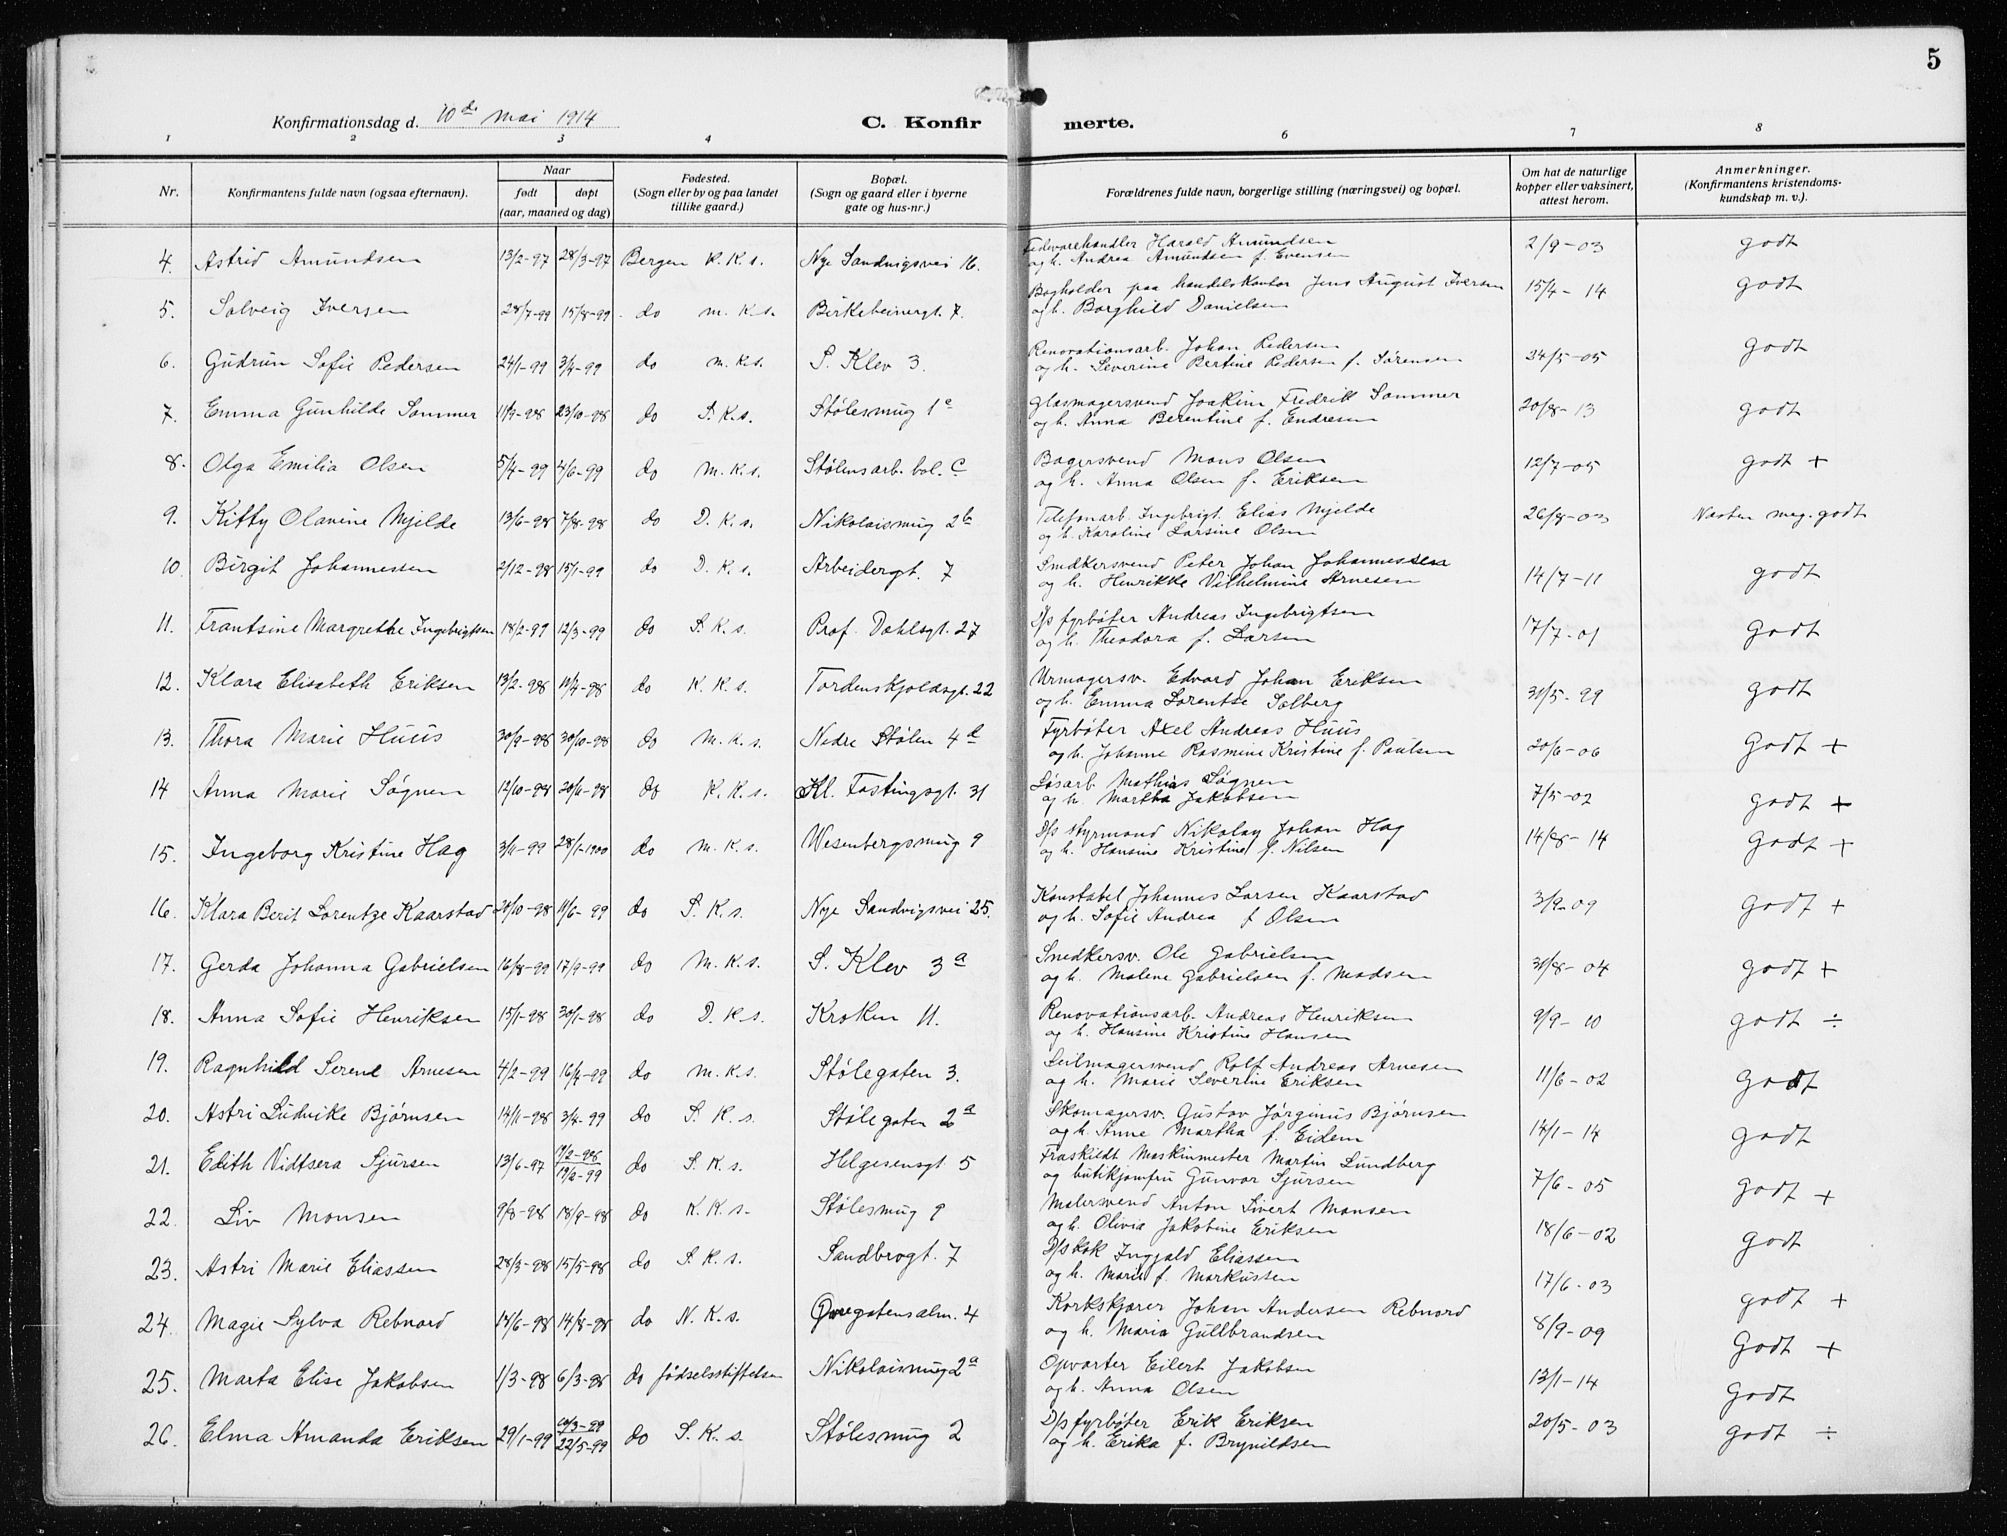 5
Konfirmationsdag d. 10de mai 1914 C. Konfir merte.
1 2 3 4 6 7 8
Nr. Konfirmantens fulde navn (ogsaa efternavn). Naar født døpt (aar, maaned og dag) Fødested. (Sogn eller by og paa landet tillike gaard.) Bopæl. (Sogn og gaard eller i byerne gate og hus-nr.) Forældrenes fulde navn, borgerlige stilling (næringsvei) og bopæl. Om hat de naturlige kopper eller vaksinert, attest herom. Anmerkninger. (Konfirmantens kristendoms-kundskap m. v.).
4. Astrid Amundsen 13/2-97 28/3-97 Bergen K.K.s. Nye Sandvigsvei 16. Fedevarehandler Harald Amundsen 2/9-03 godt
og h. Andrea Amundsen f. Evensen
5. Solveig Iversen 28/7-99 15/8-99 do m.K.s. Birkebeinergt. 7. Bogholder paa handelskontor Jens August Iversen 15/4-14 godt
og h. Borghild Danielsen
6. Gudrun Sofie Pedersen 24/1-99 3/4-99 do m.K.s. S. Klev 3. Renovationsarb. Johan Pedersen 24/5-05 godt
og h. Severine Bertine Pedersen f. Sørensen
7. Emma Gunhilde Sommer 11/9-98 23/10-98 do S.K.s. Stølesmug 1e Glasmagersvend Joakim Fredrik Sommer 20/8-13 godt
og h. Anna Berentine f. Endresen
8. Olga Emilia Olsen 5/4-99 4/6-99 do m.K.s. Stølens arb. bol. C Bagersvend Mons Olsen 12/7-05 godt +
og h. Anna Olsen f. Eriksen
9. Kitty Olavine Mjelde 13/6-98 7/8-98 do D.K.s. Nikolaismug 2b Telefonarb. Ingebrigt Elias Mjelde 26/8-03 Næsten meg. godt
og h. Karoline Larsine Olsen
10. Birgit Johannessen 2/12-98 15/1-99 do D.K.s. Arbeidergt. 7 Snedkersvend Peter Johan Johannessen 14/7-11 godt
og h. Henrikke Vilhelmine Arnesen
11. Frantsine Margrethe Ingebrigtsen 18/2-99 12/3-99 do S.K.s. Prof. Dahlsgt. 27 D/s fyrbøter Andreas Ingebrigtsen 17/7-01 godt
og h. Theodora f. Larsen
12. Klara Elisabeth Eriksen 13/2-98 11/4-98 do K.K.s. Tordenskjoldsgt. 22 Urmagersv. Edvard Johan Eriksen 30/5-99 godt
og h. Emma Lorentse Solberg
13. Thora Marie Huus 30/9-98 30/10-98 do m.K.s. Nedre Stølen 4d Fyrbøter Axel Andreas Huus 20/6-06 godt +
og h. Johanne Rasmine Kristine f. Paulsen
14 Anna Marie Søgnen 12/10-98 20/11-98 do K.K.s. Kl. Fastingsgt. 31 Løsarb. Mathias Søgnen 7/5-02 godt +
og h. Martha Jakobsen
15. Ingeborg Kristine Hag 3/11-99 28/1-1900 do m.K.s. Wesenbergsmug 9 D/s styrmand Nikolay Johan Hag 14/8-14 godt +
og h. Hansine Kristine f. Nilsen
16. Klara Berit Lorentze Kaarstad 20/10-98 11/6-99 do S.K.s. Nye Sandvigsvei 25. Konstabel Johannes Larsen Kaarstad 3/9-09 godt +
og h. Sofie Andrea f Olsen
17. Gerda Johanna Gabrielsen 16/8-99 17/9-99 do m.K.s. S. Klev 3a Snedkersv. Ole Gabrielsen 30/8-04 godt +
og h. Malene Gabrielsen f. Madsen
18. Anna Sofie Henriksen 15/1-98 30/1-98 do D.K.s. Kroken 11. Renovationsarb. Andreas Henriksen 9/9-10 godt ÷
og h. Hansine Kristine Hansen
19. Ragnhild Serene Arnesen 4/2-99 16/4-99 do m.K.s. Stølegaten 3. Seilmagersvend Rolf Andreas Arnesen 11/6-02 godt
og h. Marie Severine Eriksen
20. Astri Ludvike Bjørnsen 14/11-98 3/4-99 do S.K.s. Stølegaten 2a Skomagersv. Gustav Jørginus Bjørnsen 14/1-14 godt
og h. Anne Martha f. Eidem
21. Edith Vidtsera Sjursen 13/6-97 do S.K.s. Helgesensgt 5 Fraskildt Maskinmester Martin Lundberg 7/6-05 godt +
og butikjomfru Gunvor Sjursen
22. Liv Monsen 9/8-98 18/9-98 do K.K.s. Stølesmug 9 Malersvend Anton Sivert Monsen 18/6-02 godt
og h. Olivia Jakobine Eriksen
23. Astri Marie Eliassen 28/3-98 15/5-98 do S.K.s. Sandbrogt. 7 D/s kok Ingjald Eliassen 17/6-03 godt +
og h. Marie f. Markussen
24. Magie Sylva Rebnord 18/6-98 14/8-98 do N.K.s. Øvregatensalm. 4 Korkskjærer Johan Andersen Rebnord 8/9-09 godt +
og h. Maria Gullbrandsen
25. Marta Elise Jakobsen 1/3-98 6/3-98 do fødselsstiftelsen Nikolaismug 2a Opvarter Eilert Jakobsen 13/1-14 godt
og h. Anna Olsen
26. Elma Amanda Eriksen 29/1-99 22/5-99 do S.K.s. Stølesmug 2 D/s fyrbøter Erik Eriksen 20/5-03 godt ÷
og h. Erika f. Brynildsen